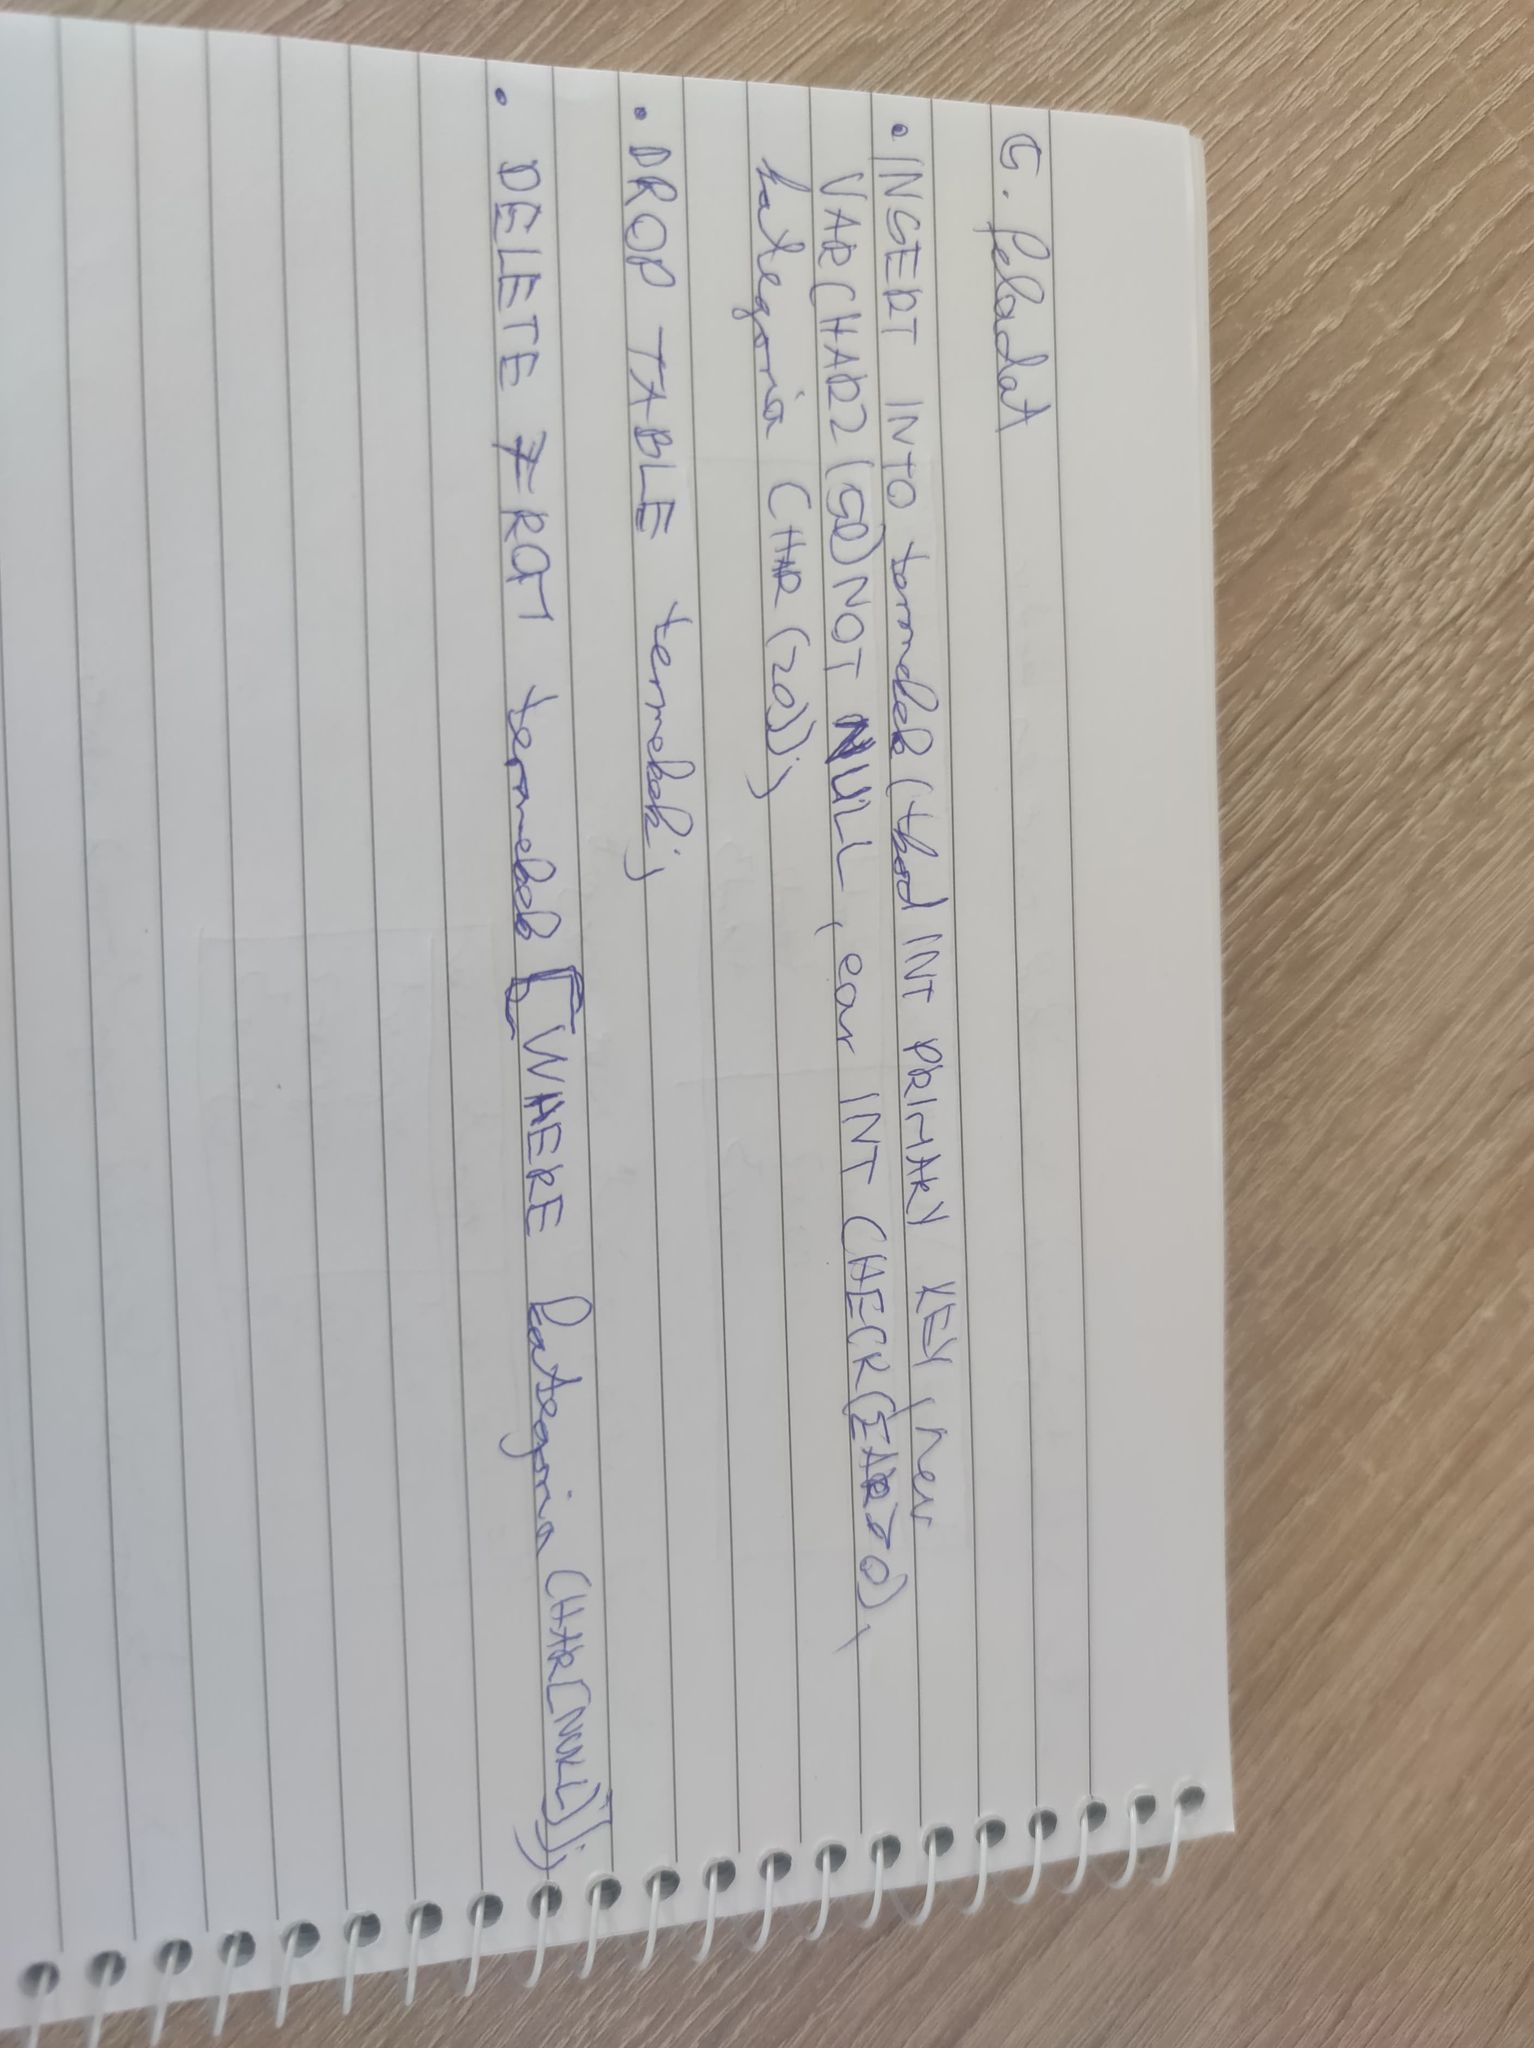 5. feladat
• INSERT INTO termekek (tkod INT PRIMARY KEY, nev
VARCHAR2(50) NOT NULL, ear INT CHECK(EAR>0),
kategoria CHAR(20));
• DROP TABLE termekek;
• DELETE FROM termekek [WHERE kategoria CHAR[NULL)];